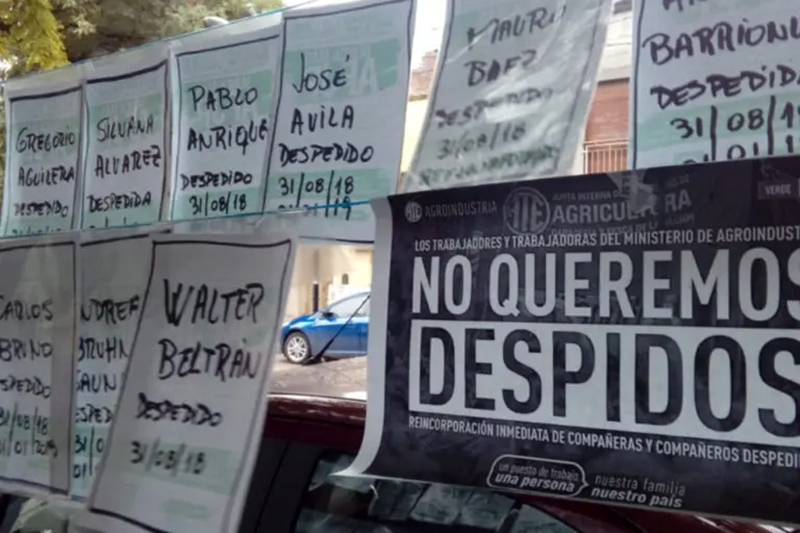 GREGORIO
AGUILERA
DESPEDIDO
SILVANA
ALVAREZ
DESPEDIDA
PABLO
ANRIQUE
DESPEDIDO
31/08/18
JOSÉ
AVILA
DESPEDIDO
31/08/18
MAURO
BAEZ
DESPEDIDO
31/08/18
DESPEDIDA
31/08/1
CARLOS
BRUNO
DESPEDIDO
31/08/18
BRUHN
WALTER
BELTRÁN
DESPEDIDO
31/08/18
ATE AGROINDUSTRIA
JUNTA INTERNA DE
AGRICULTURA
VERDE
LOS TRABAJADORES Y TRABAJADORAS DEL MINISTERIO DE AGROINDUST
NO QUEREMOS
DESPIDOS
REINCORPORACIÓN INMEDIATA DE COMPAÑERAS Y COMPAÑEROS DESPEDI
un puesto de trabajo
una persona
nuestra familia
nuestro país